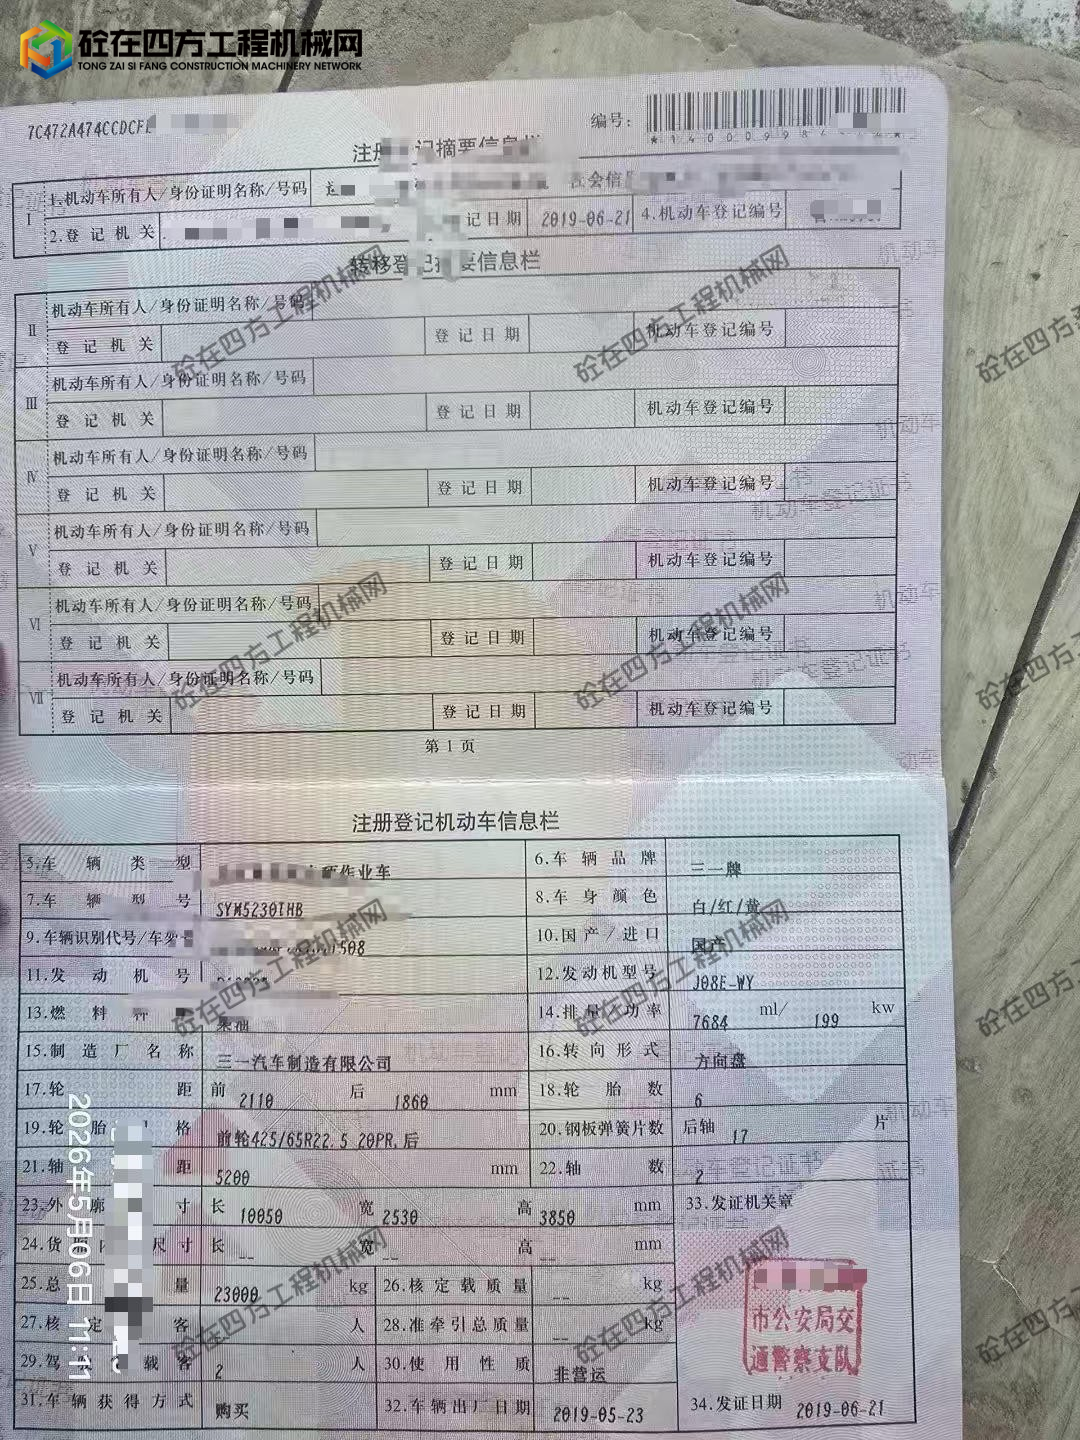 砼在四方工程机械网
TONG ZAI SI FANG CONSTRUCTION MACHINERY NETWORK
7C472A474CCDCF
编号:
注册 记摘要信息栏
I 1.机动车所有人/身份证明名称/号码 社会信
2.登记机关 记日期 2019-06-21 4.机动车登记编号
转移登记摘要信息栏
II 机动车所有人/身份证明名称/号码
登记机关 登记日期 机动车登记编号
III 机动车所有人/身份证明名称/号码
登记机关 登记日期 机动车登记编号
IV 机动车所有人/身份证明名称/号码
登记机关 登记日期 机动车登记编号
V 机动车所有人/身份证明名称/号码
登记机关 登记日期 机动车登记编号
VI 机动车所有人/身份证明名称/号码
登记机关 登记日期 机动车登记编号
VII 机动车所有人/身份证明名称/号码
登记机关 登记日期 机动车登记编号
第1页
注册登记机动车信息栏
5.车辆类型 作业车 6.车辆品牌 三一牌
7.车辆型号 SYM5230THB 8.车身颜色 白/红/黄
9.车辆识别代号/车架 508 10.国产/进口 国产
11.发动机号 12.发动机型号 J08E-WY
13.燃料种 柴油 14.排量/功率 7684 ml/ 199 kw
15.制造厂名称 三一汽车制造有限公司 16.转向形式 方向盘
17.轮距 前 2110 后 1860 mm 18.轮胎数 6
19.轮胎 格 前轮425/65R22.5 20PR,后 20.钢板弹簧片数 后轴 17 片
21.轴距 5200 mm 22.轴数 2
23.外廓 寸 长 10050 宽 2530 高 3850 mm 33.发证机关章
24.货 尺寸 长 -- 宽 -- 高 -- mm
25.总 量 23000 kg 26.核定载质量 -- kg
27.核定 客 人 28.准牵引总质量 -- kg
29.驾 载客 2 人 30.使用性质 非营运
31.车辆获得方式 购买 32.车辆出厂日期 2019-05-23 34.发证日期 2019-06-21
市公安局交
通警察支队
2026年5月06日 11:11
砼在四方工程机械网